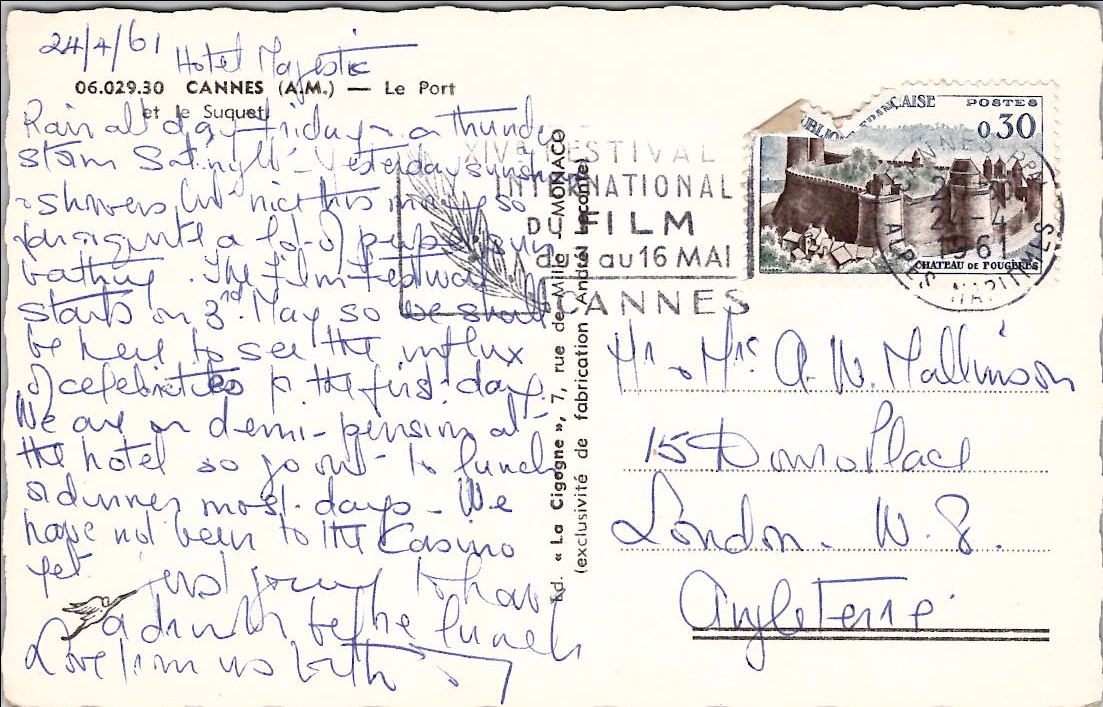 24/4/61
Hotel Majestic
06.029.30 CANNES (A.M.) — Le Port
et le Suquet
Rain all day Friday & a thunder
storm Sat. night – Yesterday sunshine
& showers, but nice this morning so
a lot of people sun
bathing. The Film Festival
starts on 3rd May so we shall
be here to see the influx
of celebrities for the first day.
We are on demi-pension at
the hotel so go out to lunch
or dinner most days – We
have not been to the Casino
yet. Just going to have
a drink before lunch
Love from us both
Ed. « La Cigogne », 7, rue de Mille - MONACO
(exclusivité de fabrication André Leconte)
XIVe FESTIVAL
INTERNATIONAL
DU FILM
au 16 MAI
CANNES
FRANÇAISE POSTES
0,30
CHATEAU DE FOUGÈRES
CANNES RP
24-4
1961
ALPES MARITIMES
Mr & Mrs. A. W. Mallinson
15 Place
London. W. 8.
Angleterre.